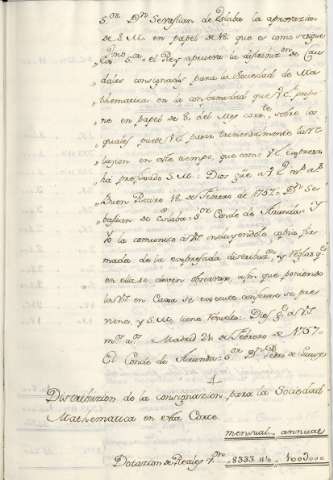 S.or D.n Sevastian de Eslaba la aprovazion
de S. M. en papel de 18. que es como sigue
Ex.mo S.or el Rey aprueva la distribuz.on de Cau-
dales consignados para la Sociedad de Ma-
thematica en la conformidad que V. E. propo-
ne en papel de 8. del Mes corr.te sobre lo
qual puede V. E. pasar
en este tiempo, que como V. E.
ha S. M. Dios g.e a V. E. m.s a.s
Buen Retiro 18 de Febrero de 1757. D.n Se-
bastian de Eslaba. S.or Conde de Aranda. Y
lo comunico a Vm. incluyendole copia fir-
mada de la expresada distribuz.on, y Reglas q.e
en ella se deven observar, a fin que poniendo
la Vm. en Caxa se execute conforme se pre-
viene, y S. M. tiene resuelto. Dios g.e a Vm.
m.s a.s Madrid 24 de Febrero de 1757.
El Conde de Aranda. S.or D.n Pedro de
Distribuzion de la consignazion para la Sociedad
Mathematica en esta Corte.
mensual, annual
Dotazion de Reales 8333 100000